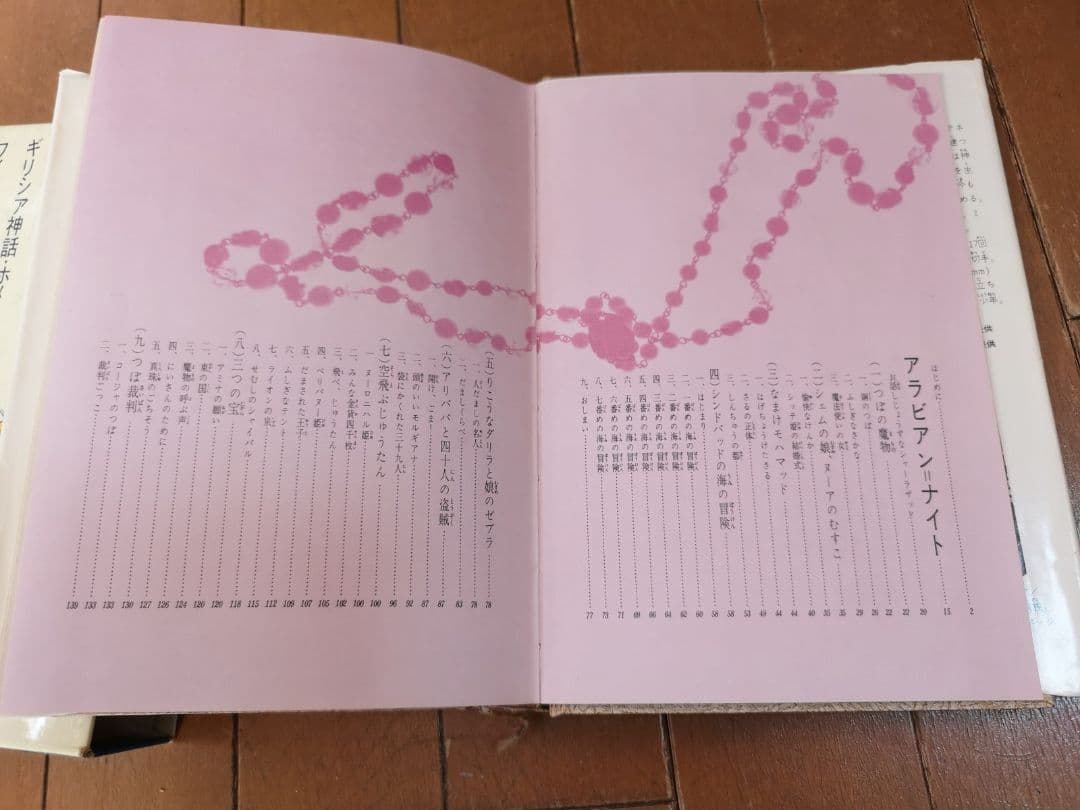 はじめに 2
アラビアン=ナイト 15
お話しじょうずなシャーラザッド 20
(一)つぼの魔物 22
一、銅のつぼ 22
二、ふしぎなさかな 26
三、魔法使いの女 29
(二)シェムの娘とヌーアのむすこ 35
一、愉快なけんか 35
二、シッチ姫の結婚式 40
(三)なまけモハマッド 44
一、はげちょうけたさる 44
二、さるの正体 49
三、しんちゅうの都 53
(四)シンドバッドの海の冒険 58
一、はじまり 58
二、一番めの海の冒険 60
三、二番めの海の冒険 62
四、三番めの海の冒険 64
五、四番めの海の冒険 66
六、五番めの海の冒険 69
七、六番めの海の冒険 71
八、七番めの海の冒険 73
九、おしまい 77
(五)りこうなダリラと娘のゼブラ 78
一、人だましの名人 78
二、だましくらべ 83
(六)アリババと四十人の盗賊 87
一、開け、ごま 87
二、頭のいいモルギアナ 92
三、袋にかくれた三十九人 96
(七)空飛ぶじゅうたん 100
一、ヌーロニハル姫 100
二、みんな金貨四千枚 102
三、飛べ、じゅうたん 105
四、ペリバヌー姫 107
五、だまされた王子 109
六、ふしぎなテント 112
七、ライオンの泉 115
八、せむしのシャイバル 118
(八)三つの宝 120
一、アミナの願い 120
二、東の国 124
三、魔物の呼ぶ声 126
四、にいさんのために 127
五、真珠のごちそう 130
(九)つぼ裁判 133
一、コージャのつぼ 133
二、裁判ごっこ 139
ギリシア神話・ホメ